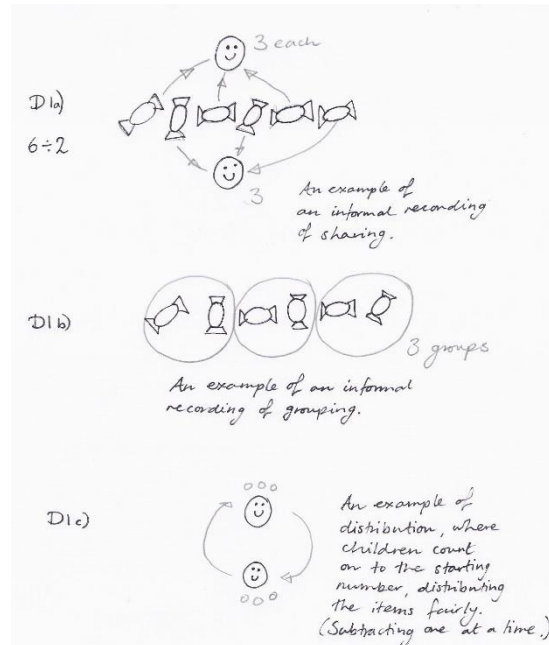 3 each
D1a)
6÷2
3
An example of
an informal recording
of sharing.
D1b)
3 groups
An example of an informal
recording of grouping.
D1c)
An example of
distribution, where
children count
on to the starting
number, distributing
the items fairly.
(Subtracting one at a time.)